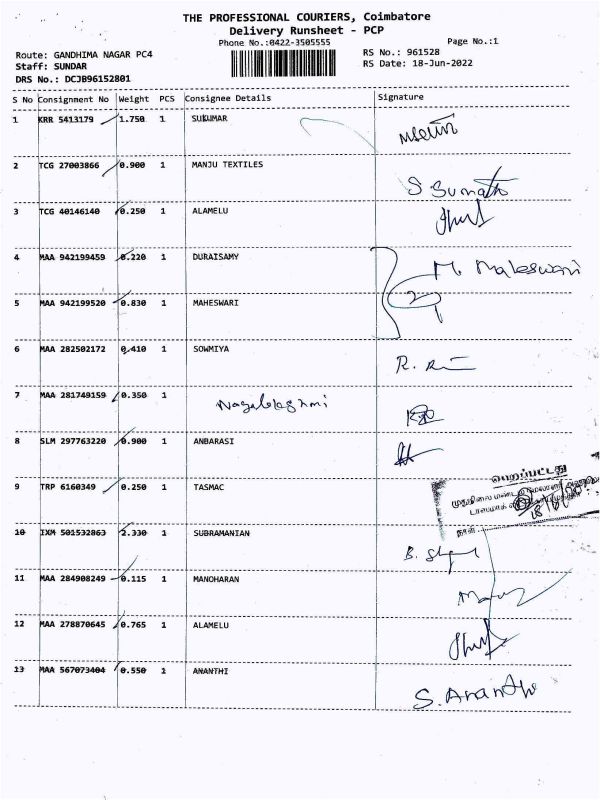 THE PROFESSIONAL COURIERS, Coimbatore
Delivery Runsheet - PCP
Phone No.:0422-3505555
Page No.:1
Route: GANDHIMA NAGAR PC4
RS No.: 961528
Staff: SUNDAR
RS Date: 18-Jun-2022
DRS No.: DCJB96152801
S No Consignment No Weight PCS Consignee Details Signature
1 KRR 5413179 1.750 1 SUKUMAR
2 TCG 27003866 0.900 1 MANJU TEXTILES
S Sumathi
3 TCG 40146140 0.250 1 ALAMELU
4 MAA 942199459 0.220 1 DURAISAMY M. Maleswari
5 MAA 942199520 0.830 1 MAHESWARI
6 MAA 282502172 0.410 1 SOWMIYA
7 MAA 281749159 0.350 1
8 SLM 297763220 0.900 1 ANBARASI
பெறப்பட்டது
9 TRP 6160349 0.250 1 TASMAC
நாள்
10 IXM 501532863 2.330 1 SUBRAMANIAN
11 MAA 284908249 0.115 1 MANOHARAN
12 MAA 278870645 0.765 1 ALAMELU
13 MAA 567073404 0.550 1 ANANTHI
S. Ananthi